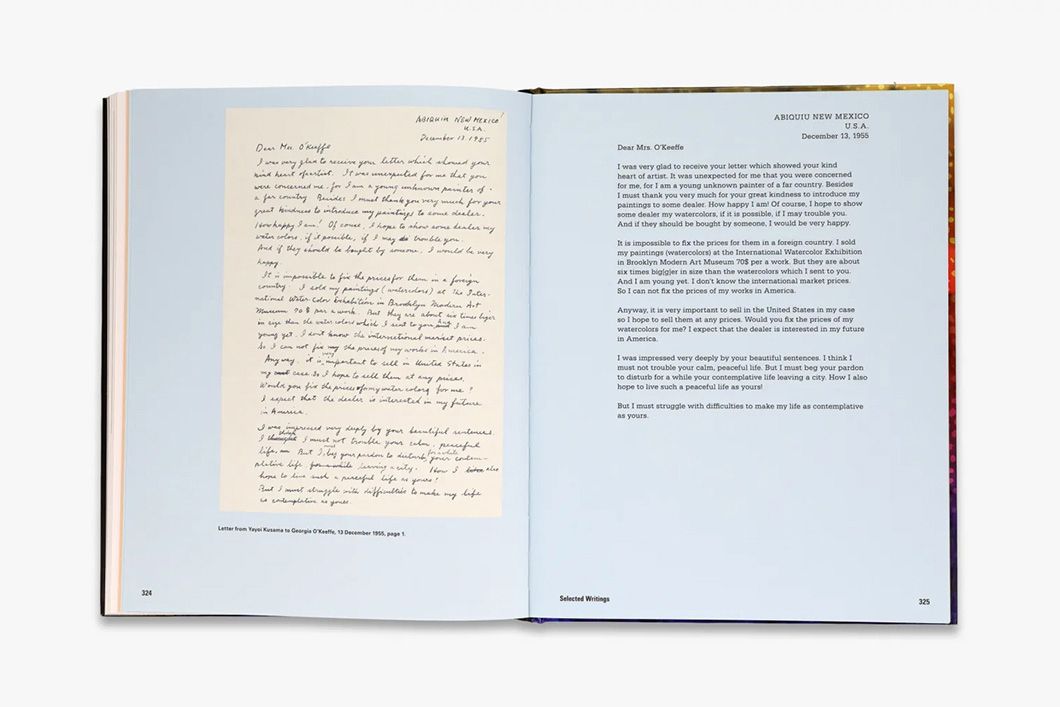 ABIQUIU NEW MEXICO
U.S.A.
December 13 1955
Dear Mrs. O'Keeffe
I was very glad to receive your letter which showed your
kind heart of artist. It was unexpected for me that you
were concerned me, for I am a young unknown painter of
a far country. Besides I must thank you very much for your
great kindness to introduce my paintings to some dealer.
How happy I am! Of course, I hope to show some dealer my
water colors, if it possible, if I may trouble you.
And if they should be bought by someone, I would be very
happy.
It is impossible to fix the prices for them in a foreign
country. I sold my paintings (watercolors) at The Inter-
national Water Color Exhibition in Brooklyn Modern Art
Museum 70$ per a work. But they are about six times biger
in size than the water colors which I sent to you. And I am
young yet. I don't know the international market prices.
So I can not fix the prices of my works in America.
Anyway, it is very important to sell in United States in
my case. So I hope to sell them at any prices.
Would you fix the prices of my water colors for me?
I expect that the dealer is interested in my future
in America.
I was impressed very deeply by your beautiful sentences.
I think I must not trouble your calm, peaceful
life. But I must beg your pardon to disturb for a while your contem-
plative life leaving a city. How I also
hope to live such a peaceful life as yours!
But I must struggle with difficulties to make my life
as contemplative as yours.
Letter from Yayoi Kusama to Georgia O'Keeffe, 13 December 1955, page 1.
324
ABIQUIU NEW MEXICO
U.S.A.
December 13, 1955
Dear Mrs. O'Keeffe
I was very glad to receive your letter which showed your kind
heart of artist. It was unexpected for me that you were concerned
for me, for I am a young unknown painter of a far country. Besides
I must thank you very much for your great kindness to introduce my
paintings to some dealer. How happy I am! Of course, I hope to show
some dealer my watercolors, if it is possible, if I may trouble you.
And if they should be bought by someone, I would be very happy.
It is impossible to fix the prices for them in a foreign country. I sold
my paintings (watercolors) at the International Watercolor Exhibition
in Brooklyn Modern Art Museum 70$ per a work. But they are about
six times big[g]er in size than the watercolors which I sent to you.
And I am young yet. I don't know the international market prices.
So I can not fix the prices of my works in America.
Anyway, it is very important to sell in the United States in my case
so I hope to sell them at any prices. Would you fix the prices of my
watercolors for me? I expect that the dealer is interested in my future
in America.
I was impressed very deeply by your beautiful sentences. I think I
must not trouble your calm, peaceful life. But I must beg your pardon
to disturb for a while your contemplative life leaving a city. How I also
hope to live such a peaceful life as yours!
But I must struggle with difficulties to make my life as contemplative
as yours.
Selected Writings
325